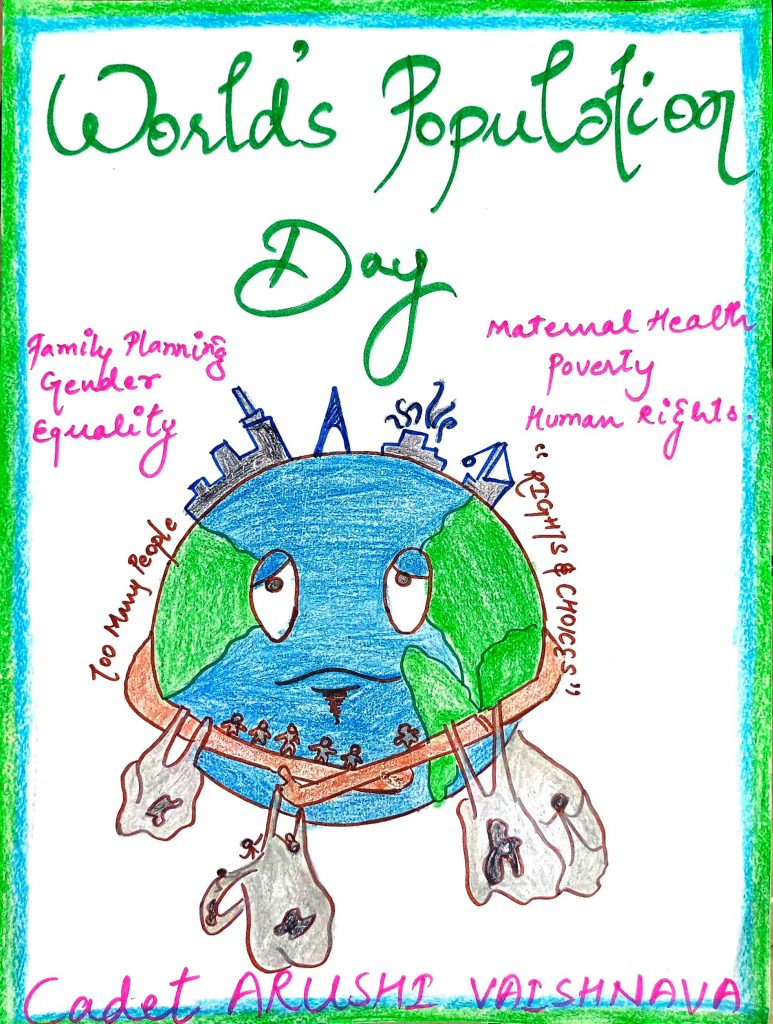 World's Population
Day
Family Planning
Gender
Equality
Maternal Health
Poverty
Human Rights.
Too Many People
"RIGHTS & CHOICES"
Cadet ARUSHI VAISHNAVA